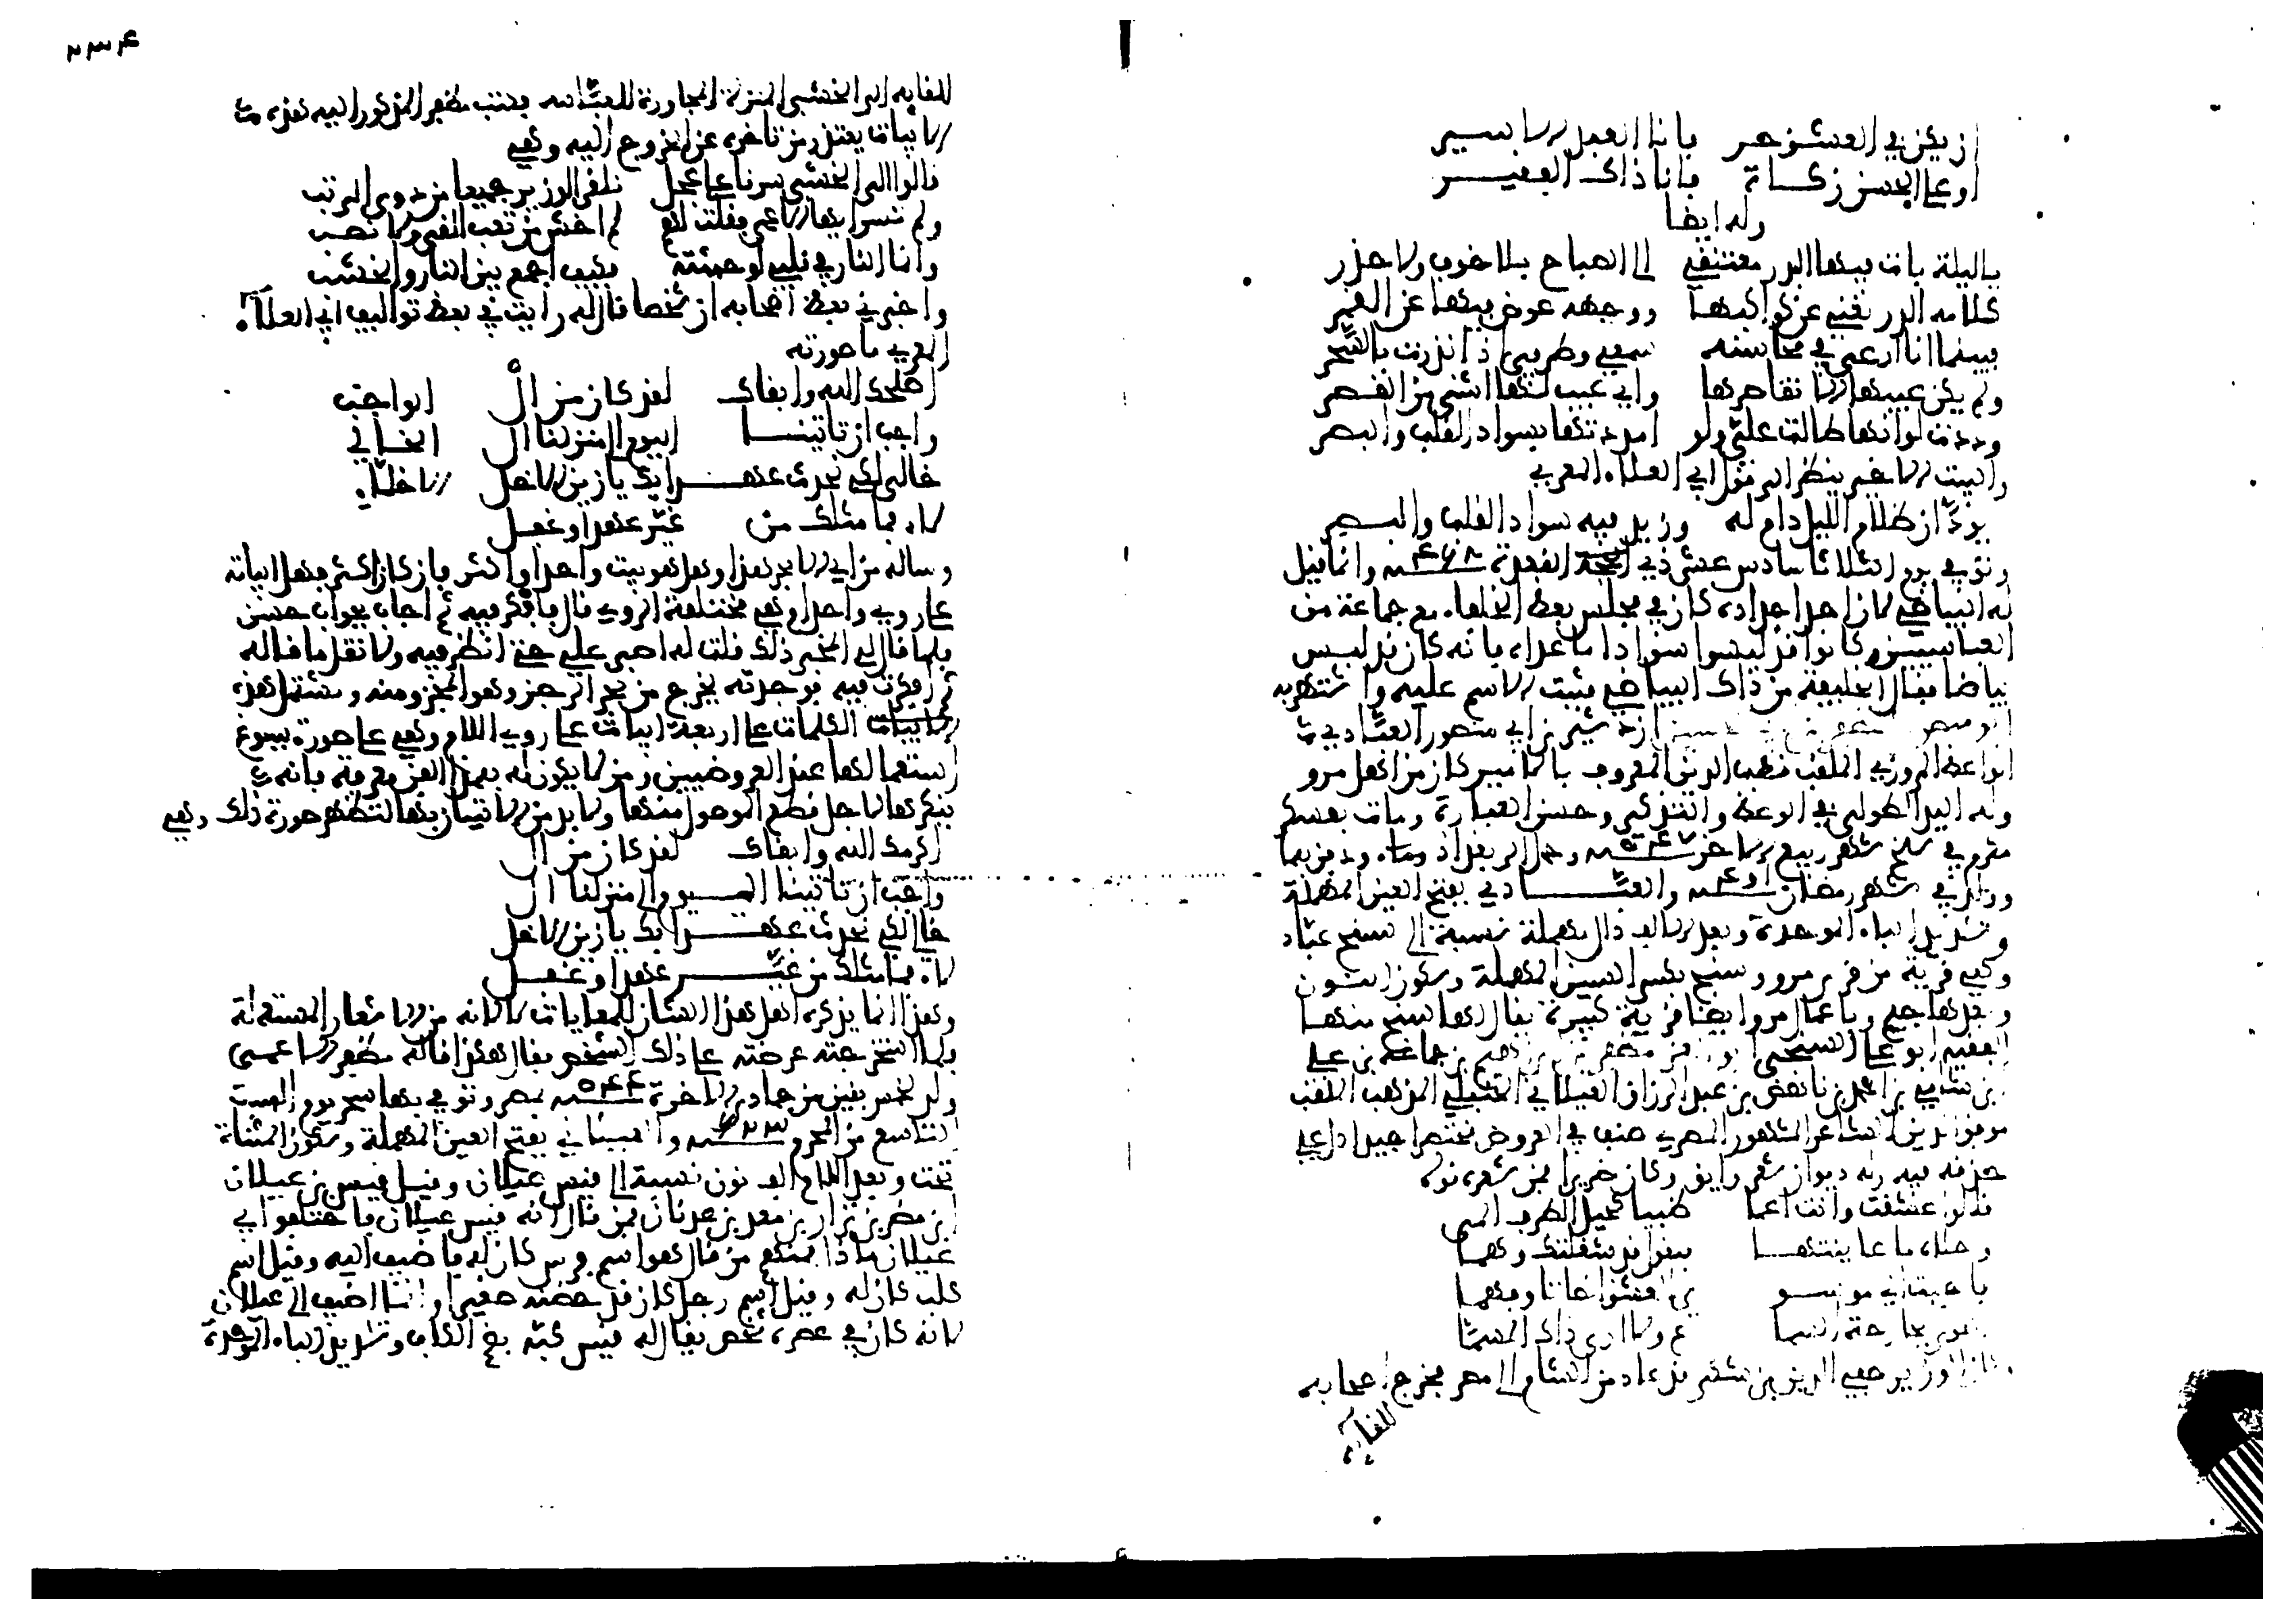 ان يكن في العشق حر فانا العبد الاسير
او على الحسن زكاة فانا ذاك الفقير
وله ايضا
يا ليلة بات فيها البدر معتنقي الى الصباح بلا خوف ولا حذر
كلامه الدر يغني عن كواكبها ووجهه عوض فيها عن القمر
فبينما انا ارعى في محاسنه سمعي وطرفي اذ انذرت بالسحر
ولم يكن عيبها الا تقاصرها واي عيب لها اشنى من القصر
وددت لو انها طالت علي ولو امددتها بسواد القلب والبصر
والبيت الاخير ينظر الى قول ابي العلاء المعري
يود ان ظلام الليل دام له وزيد فيه سواد القلب والبصر
وتوفي يوم الثلاثا سادس عشر ذي القعدة سنة ٤٦٨ وانما قيل
له البياضي لان احد اجداده كان في مجلس بعض الخلفاء مع جماعة من
العباسيين وكانوا قد لبسوا سوادا ما عداه فانه كان قد لبس
بياضا فقال الخليفة من ذاك البياضي فثبت الاسم عليه واشتهر به
ابو منصور ازدشير بن ابي منصور العبادي
الواعظ المروزي الملقب قطب الدين المعروف بالامير كان من اهل مرو
وله اليد الطولى في الوعظ والتذكير وحسن العبارة ومات بعسكر
مكرم في سلخ شهر ربيع الاخر سنة ٥٤٧ وحمل الى بغداد ودفن بها
وولد في شهر رمضان سنة ٤٩١ والعبادي بفتح العين المهملة
وتشديد الباء الموحدة وبعد الالف دال مهملة نسبة الى سنج عباد
وهي قرية من قرى مرو وسنج بكسر السين المهملة وسكون النون
وبعدها جيم وباعمال مرو ايضا قرية كبيرة يقال لها سنج منها
الفقيه ابو علي السنجي ابو العز مظفر بن ابراهيم بن جماعة بن علي
بن شامي بن احمد بن ناهض بن عبد الرزاق العيلاني الحنبلي المذهب الملقب
موفق الدين الشاعر المشهور المصري صنف في العروض مختصرا جيدا دل على
حذقه فيه وله ديوان شعر رايق وكان ضريرا فمن شعره قوله
قالوا عشقت وانت اعما ظبيا كحيل الطرف المى
وحلاه ما عاينتها فنقول قد شغلتك وهما
فاجبت اني موسو ي العشق انصاتا وفهما
اهوى بجارحة السما ع ولا ارى ذاك المسما
وكان الوزير صفي الدين بن شكر قد عاد من الشام الى مصر فخرج اصحابه
للقايه
٢٣٤
للقايه الى الخشبي المنزلة المجاورة للعباسه فكتب مظفر المذكور اليه هذه
الابيات يعتذر من تاخره عن الخروج اليه وهي
قالوا الى الخشبي سرنا على عجل نلقى الوزير جميعا من ذوي الرتب
ولم تسر ايها الاعمى فقلت لهم لم اخش من تعب القى ولا نصب
وانما النار في قلبي لوحشته فكيف اجمع بين النار والخشب
واخبرني بعض اصحابه ان شخصا قال له رايت في بعض تواليف ابي العلاء
المعري ما صورته
اصلحك الله وابقاك لقد كان من ال الواجب
واجب ان تاتينا اليوم الى منزلنا ال الخالي
خالي لكي نحدث عهدا بك يا زين الاخلـ الاخلاء
لاء فما مثلك من غير عهدا او غفل
وساله من اي الابحر هذا وهل هو بيت واحد او اكثر فان كان اكثر فهل ابياته
على روي واحد او هي مختلفة الروي قال فافكر فيه ثم اجاب بجواب حسن
فلما قال لي المخبر ذلك قلت له اصبر علي حتى انظر فيه ولا تقل ما قاله
ثم افكرت فيه فوجدته يخرج من بحر الرجز وهو المجزو منه وتشتمل هذه
الكلمات على اربعة ابيات على روي اللام وهي على صورة يسوغ
استعمالها عند العروضيين ومن لا يكون له بهذا الفن معرفة فانه
ينكرها لاجل قطع الموصول منها ولا بد من الاتيان بها لتظهر صورة ذلك وهي
اكرمك الله وابقاك لقد كان من ال
واجب ان تاتينا اليوم الى منزلنا ال
خالي لكي نحدث عهدا بك يا زين الاخل
لاء فما مثلك من غير عهدا او غفل
وهذا انما يذكره اهل هذا الشان للمعاياة لا لانه من الاشعار المستعملة
فلما استخرجته عرضته على ذلك الشخص فقال هكذا قاله مظفر الاعمى
ولد لخمس بقين من جمادى الاخرة سنة ٥٤٤ بمصر وتوفي بها سحر يوم السبت
التاسع من المحرم سنة ٦٢٣ والعيلاني بفتح العين المهملة وسكون المثناة
تحت وبعد اللام الف نون نسبة الى قيس عيلان وقيل قيس بن عيلان
ابن مضر بن نزار بن معد بن عدنان فمن قال انه قيس عيلان فاختلفوا في
عيلان ماذا فمنهم من قال هو اسم فرس كان له فاضيف اليه وقيل اسم
كلب كان له وقيل اسم رجل كان قد حضنه صغيرا وانما اضيف الى عيلان
لانه كان في عصره شخص يقال له قيس كبة بضم الكاف وتشديد الباء الموحدة